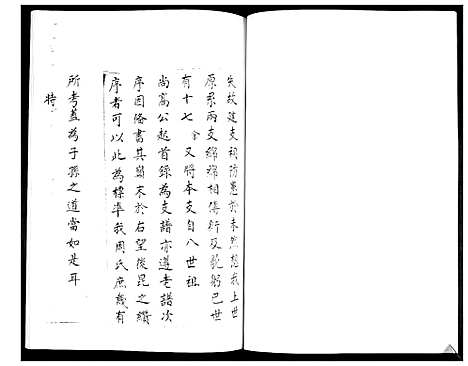 失故建支祠防患於未然想我上世
原系兩支綿綿相傳衍及
已世
有十七 令又將本支自八世祖
尚富公起首錄為支譜亦遵老譜次
序因俻書其顛末於右望後昆之纘
序者可以此為標準我周氏庶幾有
所考蓋為子孫之道當如是耳
特